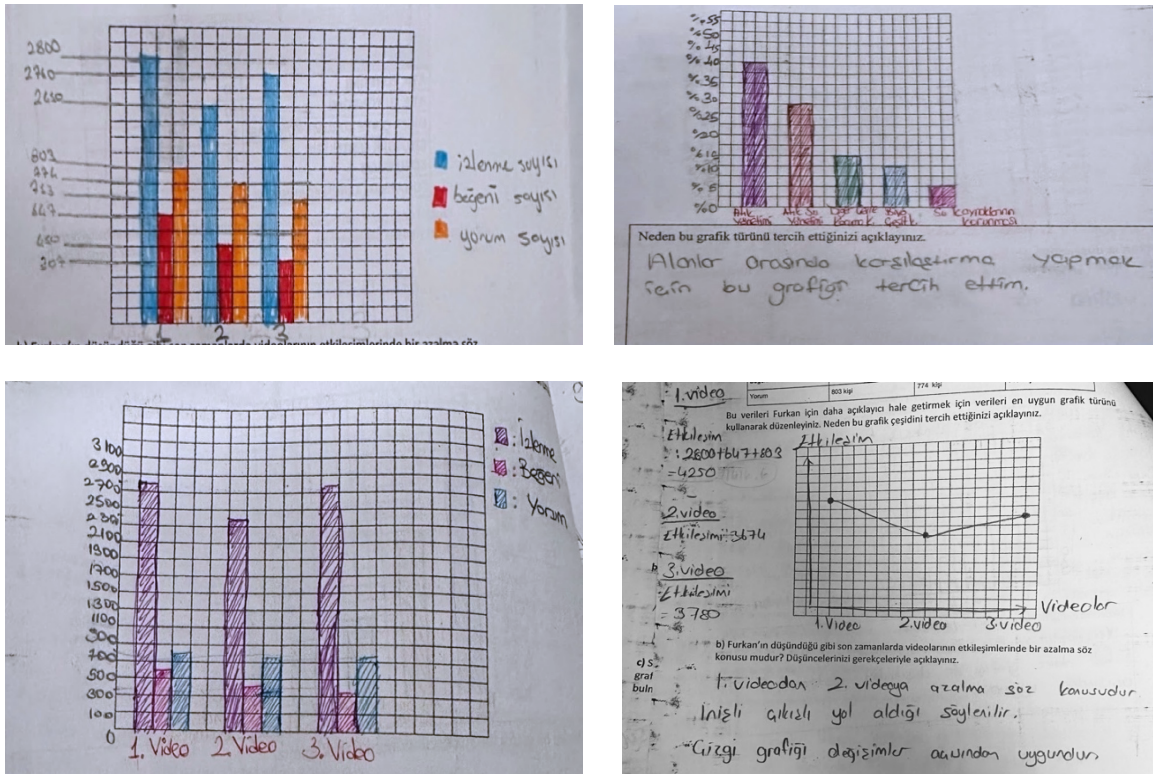 2800
2760
803
774
763
647
400
307
izlenme sayısı
beğeni sayısı
yorum sayısı
1 2 3
%55
%50
%45
%40
%35
%30
%25
%20
%10
%0
Atık Yönetimi
Su kaynaklarının korunması
Neden bu grafik türünü tercih ettiğinizi açıklayınız.
Alanlar arasında karşılaştırma yapmak
için bu grafiği tercih ettim.
3100
2900
2700
2500
2300
2100
1900
1700
1500
1300
1100
900
700
500
300
100
0
1. Video 2. Video 3. Video
: İzlenme
: Beğeni
: Yorum
Yorum 803 kişi 774 kişi
Bu verileri Furkan için daha açıklayıcı hale getirmek için verileri en uygun grafik türünü
kullanarak düzenleyiniz. Neden bu grafik çeşidini tercih ettiğinizi açıklayınız.
1. video
Etkileşim
: 2800+647+803
=4250
2. video
Etkileşimi: 3674
3. video
Etkileşimi
= 3780
Etkileşim
Videolar
1. Video 2. video 3. video
b) Furkan'ın düşündüğü gibi son zamanlarda videolarının etkileşimlerinde bir azalma söz
konusu mudur? Düşüncelerinizi gerekçeleriyle açıklayınız.
c) S
graf
buln
1. videodan 2. videoya azalma söz konusudur
İnişli çıkışlı yol aldığı söylenilir.
Çizgi grafiği değişimler açısından uygundur.